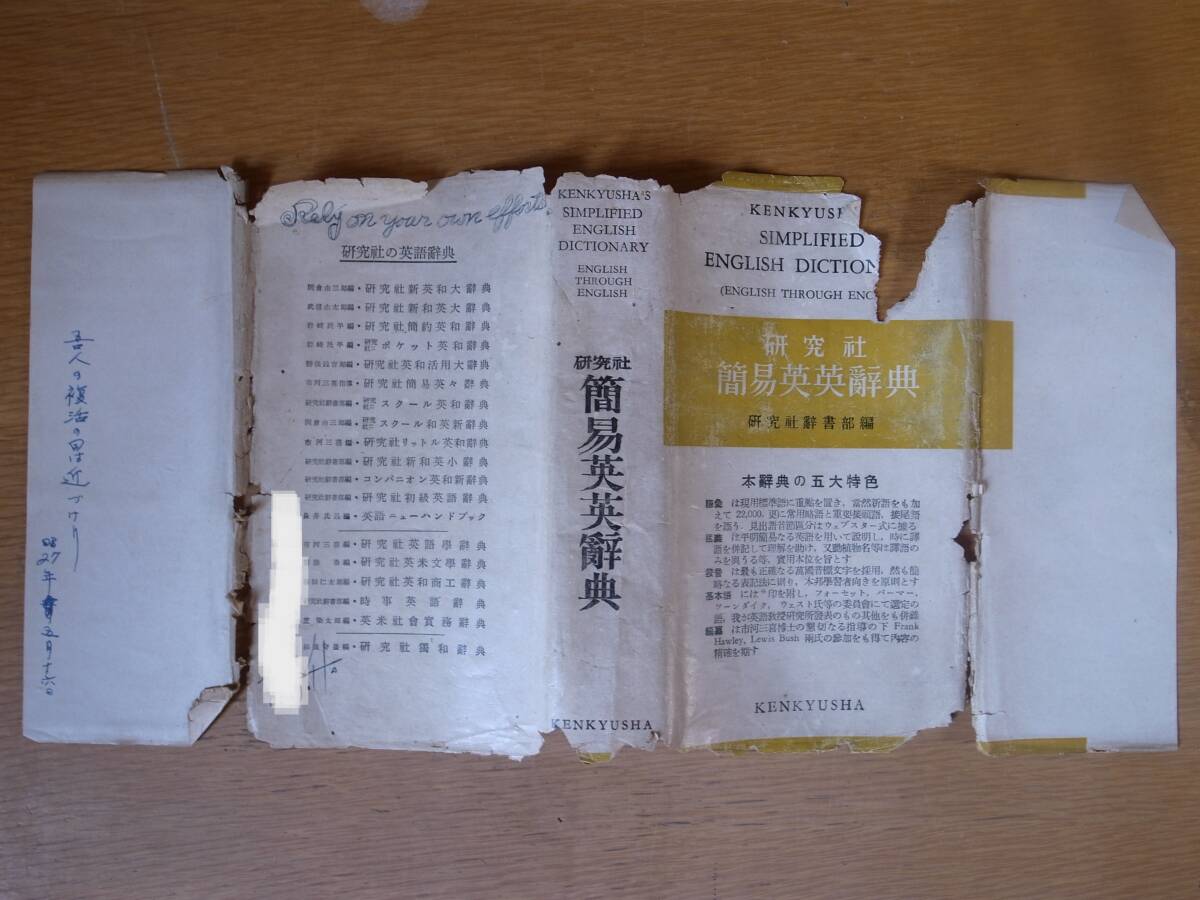 吾人の復活の日近づけり
昭27年五月十六日
Rely on your own efforts.
研究社の英語辭典
岡倉由三郎編・研究社新英和大辭典
武信由太郎編・研究社新和英大辭典
岩崎民平編・研究社簡約英和辭典
岩崎民平編・研究社ポケット英和辭典
勝俣銓吉郎編・研究社英和活用大辭典
市河三喜指導・研究社簡易英々辭典
研究社辭書部編・研究社スクール英和辭典
岡倉由三郎編・研究社スクール和英新辭典
市河三喜編・研究社リットル英和辭典
研究社辭書部編・研究社新和英小辭典
研究社辭書部編・コンパニオン英和新辭典
研究社辭書部編・研究社初級英語辭典
長井氏晸編・英語ニューハンドブック
市河三喜編・研究社英語學辭典
編・研究社英米文學辭典
仁太郎編・研究社英和商工辭典
研究社辭書部編・時事英語辭典
榮太郎編・英米社會實務辭典
編・研究社獨和辭典
KENKYUSHA'S
SIMPLIFIED
ENGLISH
DICTIONARY
ENGLISH
THROUGH
ENGLISH
研究社
簡易英英辭典
KENKYUSHA
KENKYUSH
SIMPLIFIED
ENGLISH DICTION
(ENGLISH THROUGH ENG
研究社
簡易英英辭典
研究社辭書部編
本辭典の五大特色
語彙 は現用標準語に重點を置き，當然新語をも加
えて 22,000. 更に常用略語と重要接頭語，接尾語
を語う．見出語音節區分はウェブスター式に據る
語義 は平明簡易なる英語を用いて說明し，時に譯
語を併記して理解を助け，又動植物名等は譯語の
みを與うる等，實用本位を旨とす
發音 は最も正確なる萬國音標文字を採用，然も簡
略なる表記法に則り，本邦學習者向きを原則とす
基本語 には*印を附し，フォーセット，パーマー，
ソーンダイク，ウェスト氏等の委員會にて選定の
語，我が英語敎授硏究所發表のもの其他をも併錄
編纂 は市河三喜博士の懇切なる指導の下 Frank
Hawley, Lewis Bush 兩氏の參加をも得て內容の
精確を期す
KENKYUSHA